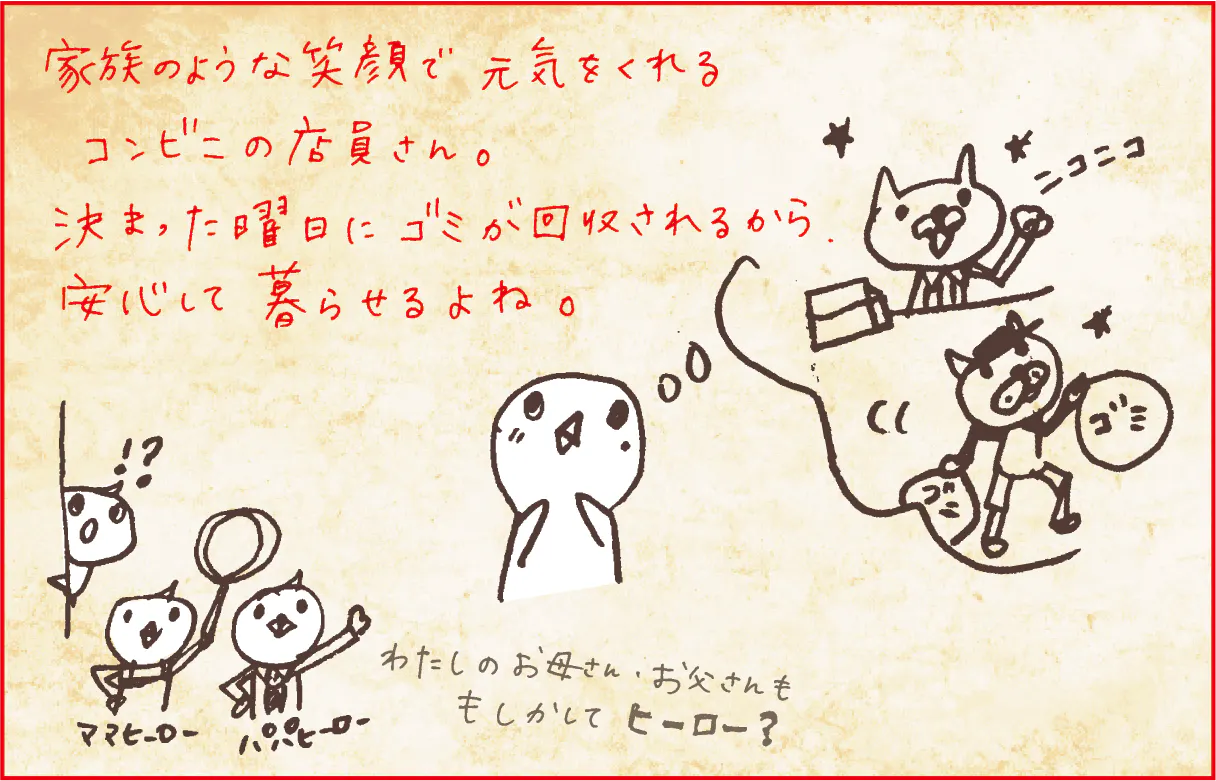 家族のような笑顔で 元気をくれる
コンビニの店員さん。
決まった曜日に ゴミが回収されるから、
安心して 暮らせるよね。
ニコニコ
ゴミ
ゴミ
!?
ママヒーロー
パパヒーロー
わたしのお母さん・お父さんも
もしかして ヒーロー?